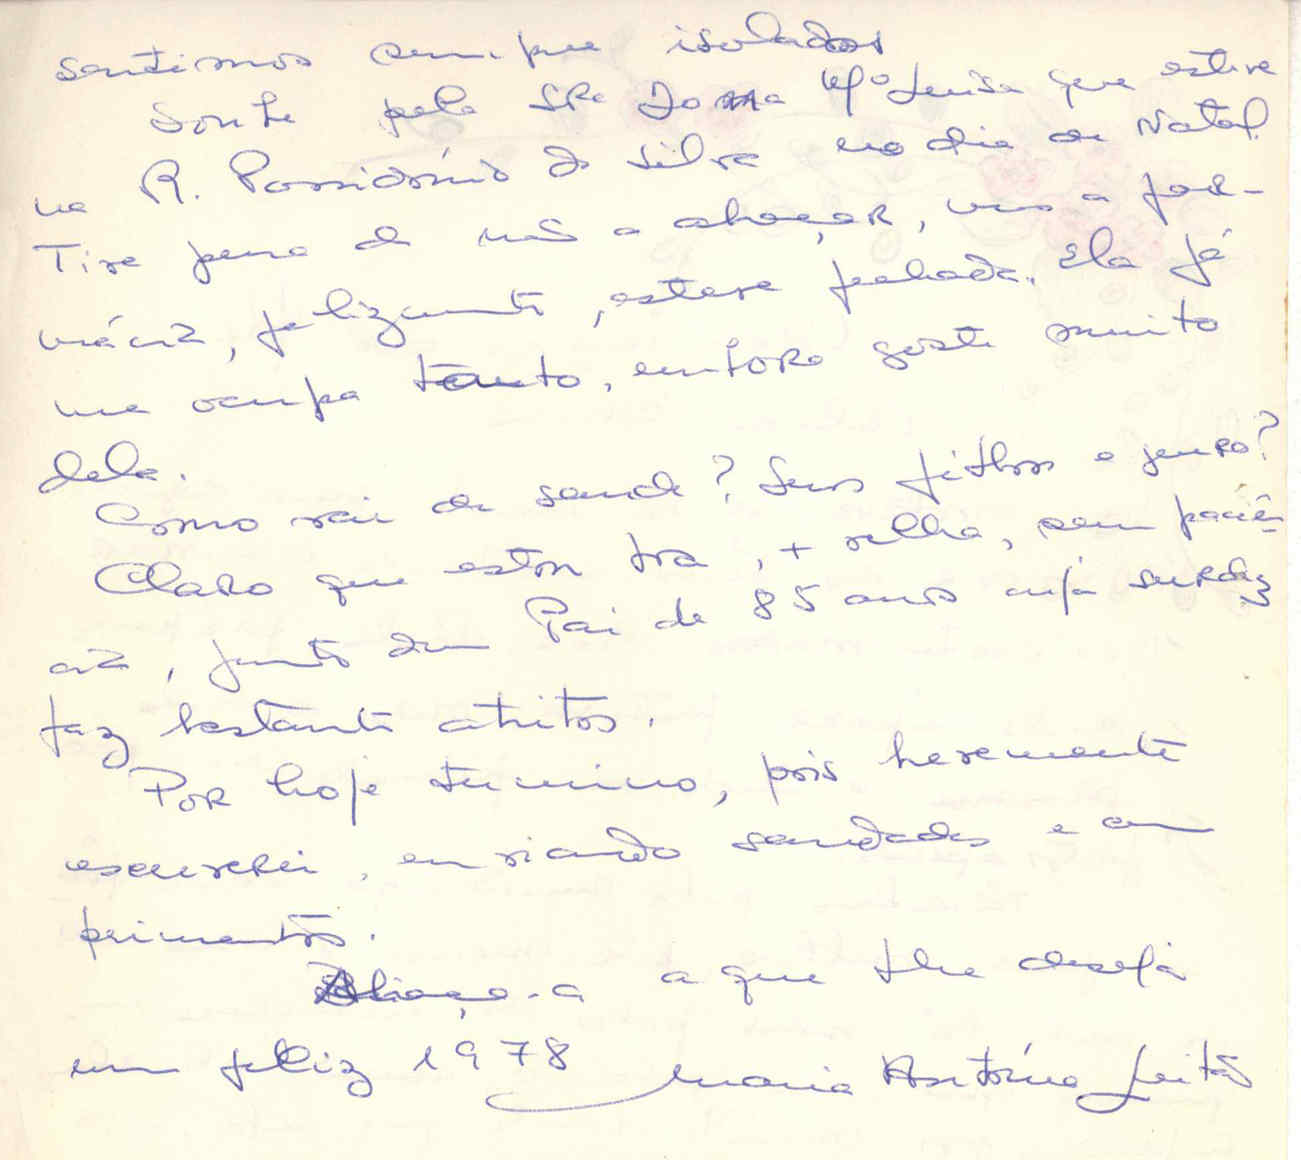 sentimos sempre isolados
Soube pela Sra Dona Mª Luísa que esteve
na R. Possidónio da Silva no dia de Natal.
Tive pena de não a abraçar, mas a far-
mácia, felizmente, esteve fechada. Ela já
me ocupa tanto, embora goste muito
dela.
Como vai de saude? Seus filhos e genro?
Claro que estou boa, + velha, sem paciên-
cia, junto dum Pai de 85 anos cuja surdez
faz bastante atritos.
Por hoje termino, pois brevemente
escreverei, enviando saudades e cum
primentos.
Abraça-a a que lhe deseja
um feliz 1978 Maria Antónia Leitão